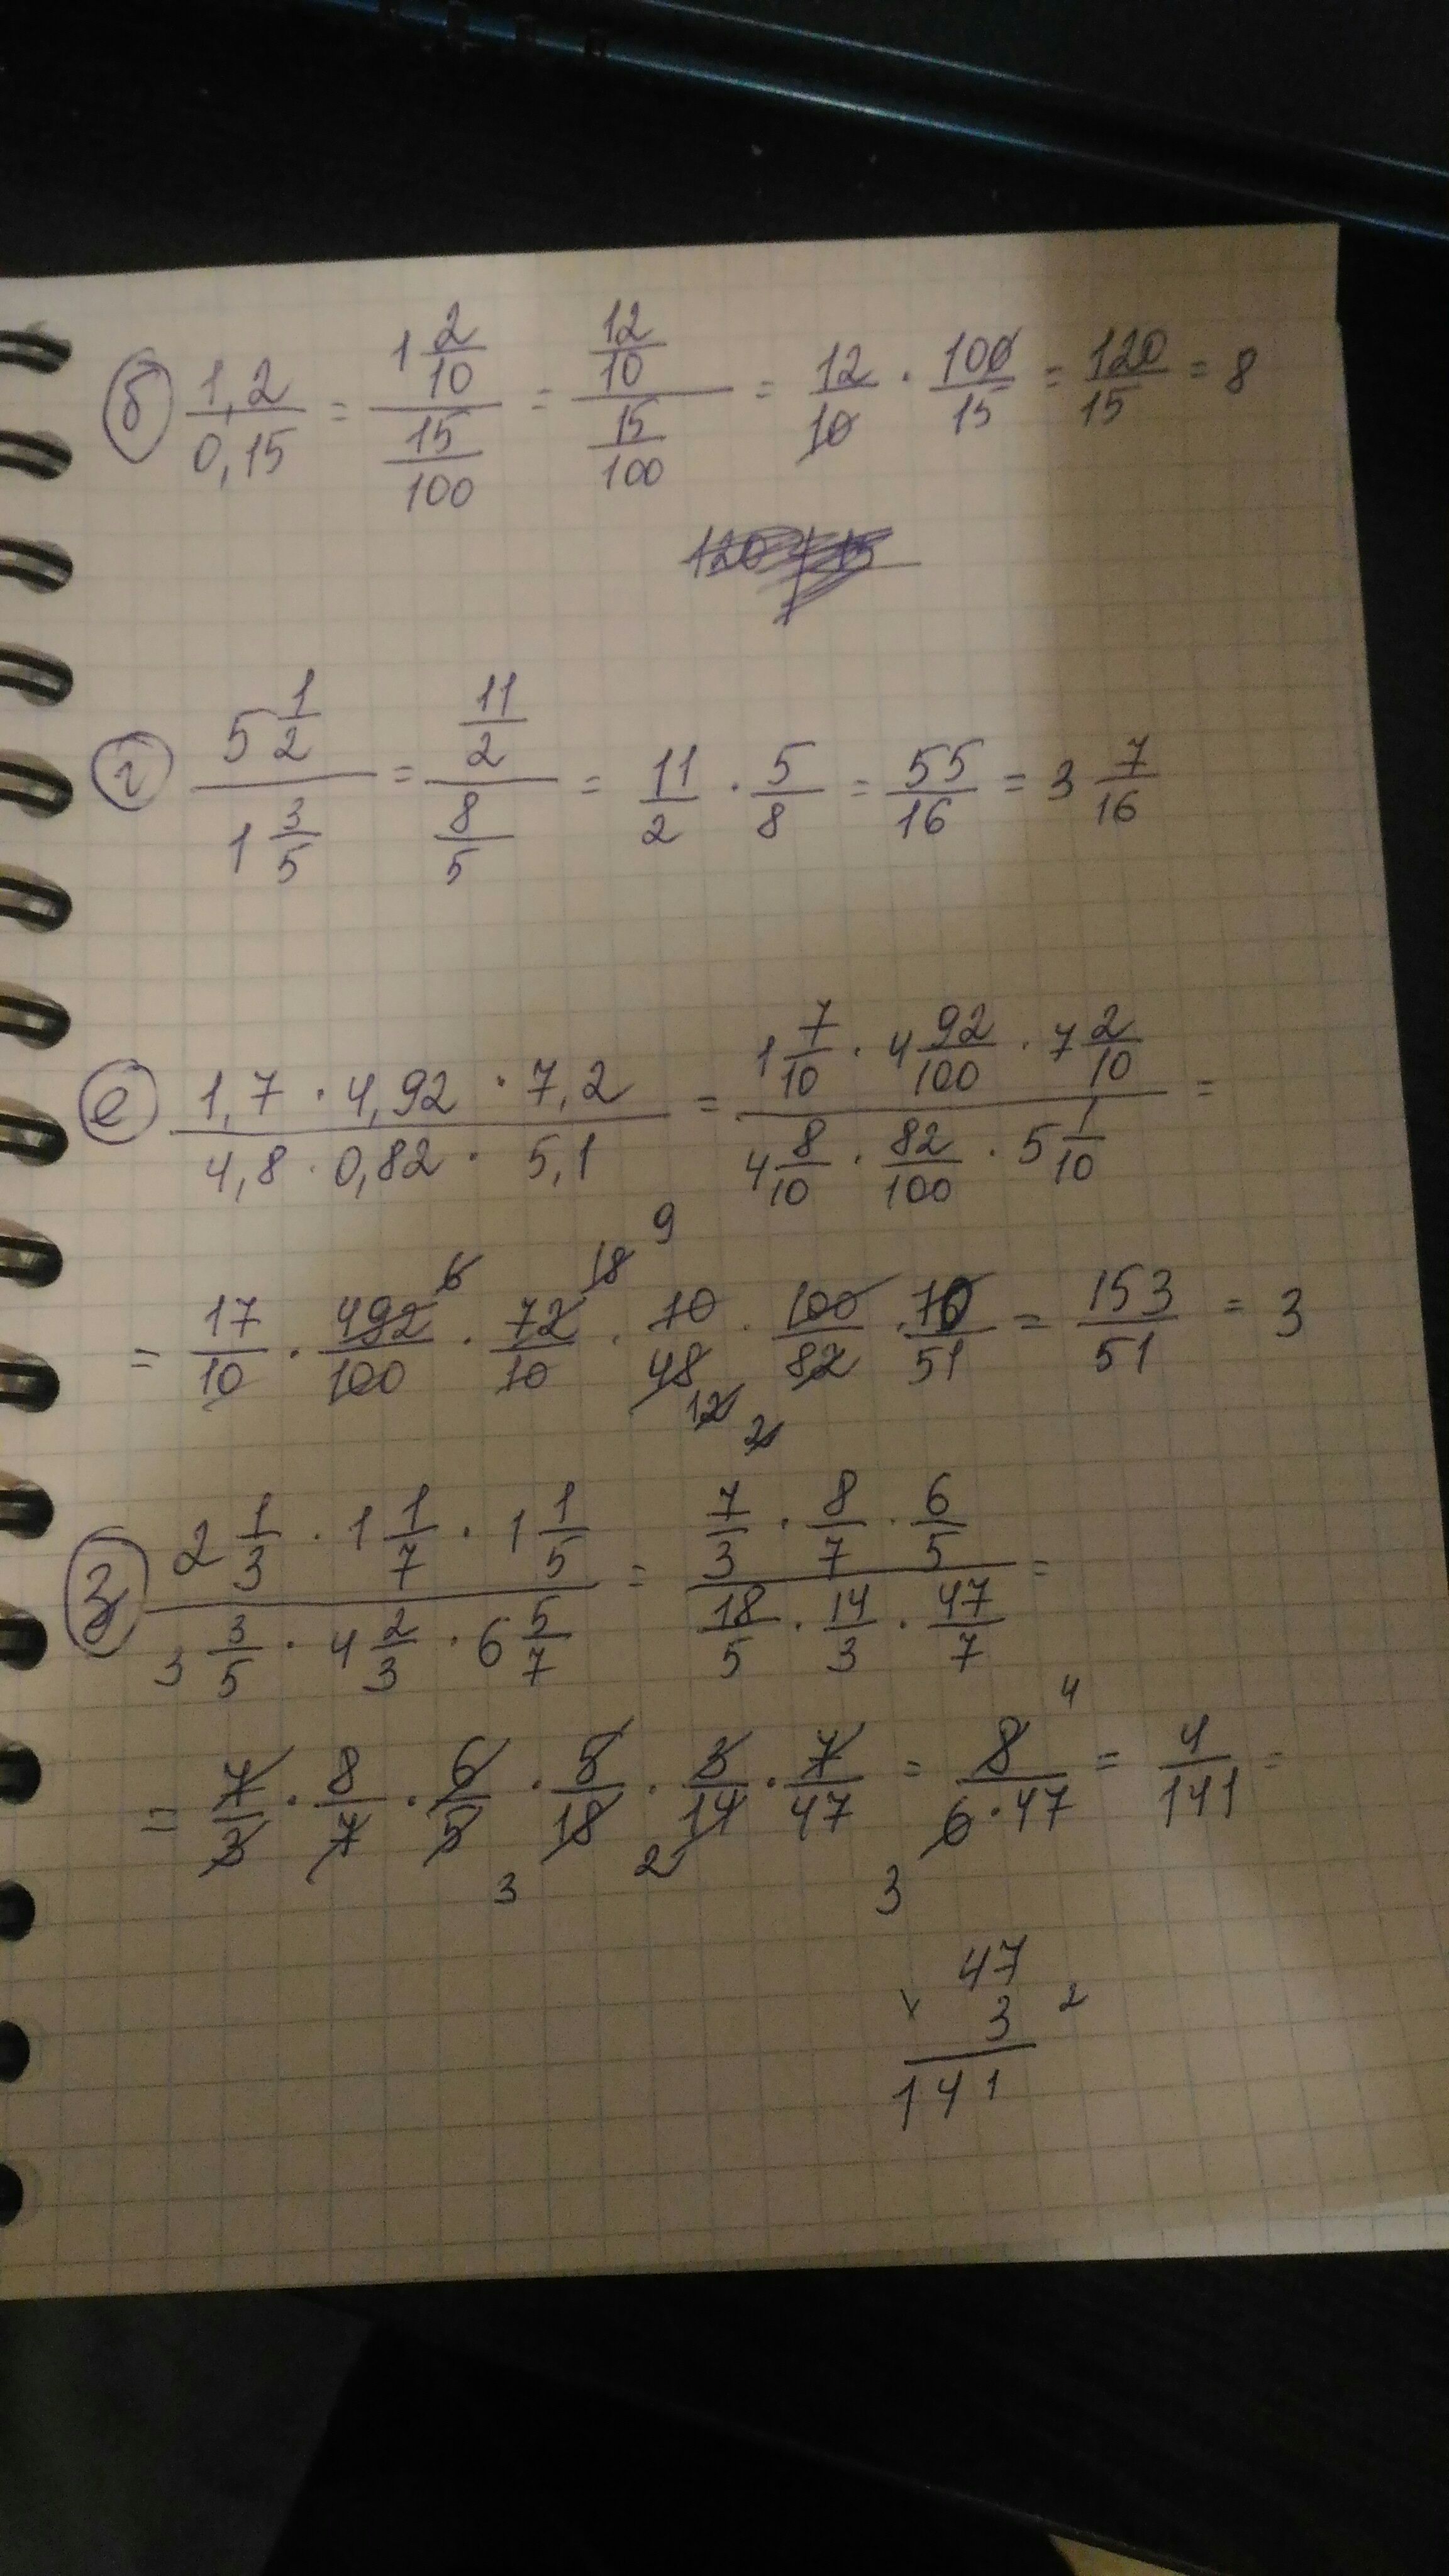 б) 1,2/0,15 = (1 2/10)/(15/100) = (12/10)/(15/100) = 12/10 · 100/15 = 120/15 = 8
120 15
г) (5 1/2)/(1 3/5) = (11/2)/(8/5) = 11/2 · 5/8 = 55/16 = 3 7/16
е) (1,7 · 4,92 · 7,2)/(4,8 · 0,82 · 5,1) = (1 7/10 · 4 92/100 · 7 2/10)/(4 8/10 · 82/100 · 5 1/10) =
6 18 9
= 17/10 · 492/100 · 72/10 · 10/48 · 100/82 · 10/51 = 153/51 = 3
12 2
з) (2 1/3 · 1 1/7 · 1 1/5)/(3 3/5 · 4 2/3 · 6 5/7) = (7/3 · 8/7 · 6/5)/(18/5 · 14/3 · 47/7) =
4
= 7/3 · 8/7 · 6/5 · 5/18 · 3/14 · 7/47 = 8/(6 · 47) = 4/141 =
3 2 3
47
× 3 2
141